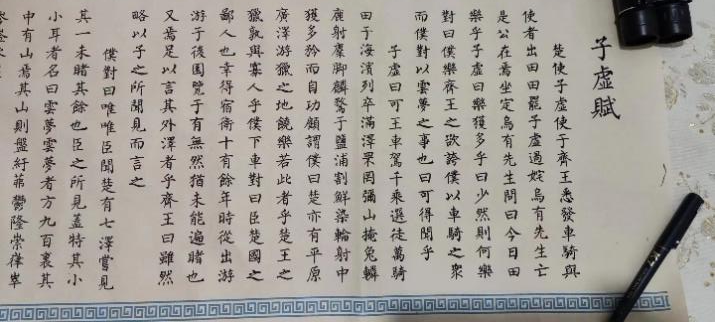 子虛賦
楚使子虛使于齊王悉發車騎與
使者出田田罷子虛過姹烏有先生亡
是公在焉坐定烏有先生問曰今日田
樂乎子虛曰樂獲多乎曰少然則何樂
對曰僕樂齊王之欲誇僕以車騎之衆
而僕對以雲夢之事也曰可得聞乎
子虛曰可王車駕千乘選徒萬騎
田于海濱列卒滿澤罘罔彌山掩兔轔
鹿射麋脚麟騖于鹽浦割鮮染輪射中
獲多矜而自功顧謂僕曰楚亦有平原
廣澤游獵之地饒樂若此者乎楚王之
獵孰與寡人乎僕下車對曰臣楚國之
鄙人也幸得宿衛十有餘年時從出游
游于後園覽于有無然猶未能遍睹也
又焉足以言其外澤者乎齊王曰雖然
略以子之所聞見而言之
僕對曰唯唯臣聞楚有七澤嘗見
其一未睹其餘也臣之所見蓋特其小
小耳者名曰雲夢雲夢者方九百裏其
中有山焉其山則盤紆茀鬱隆崇嵂崒